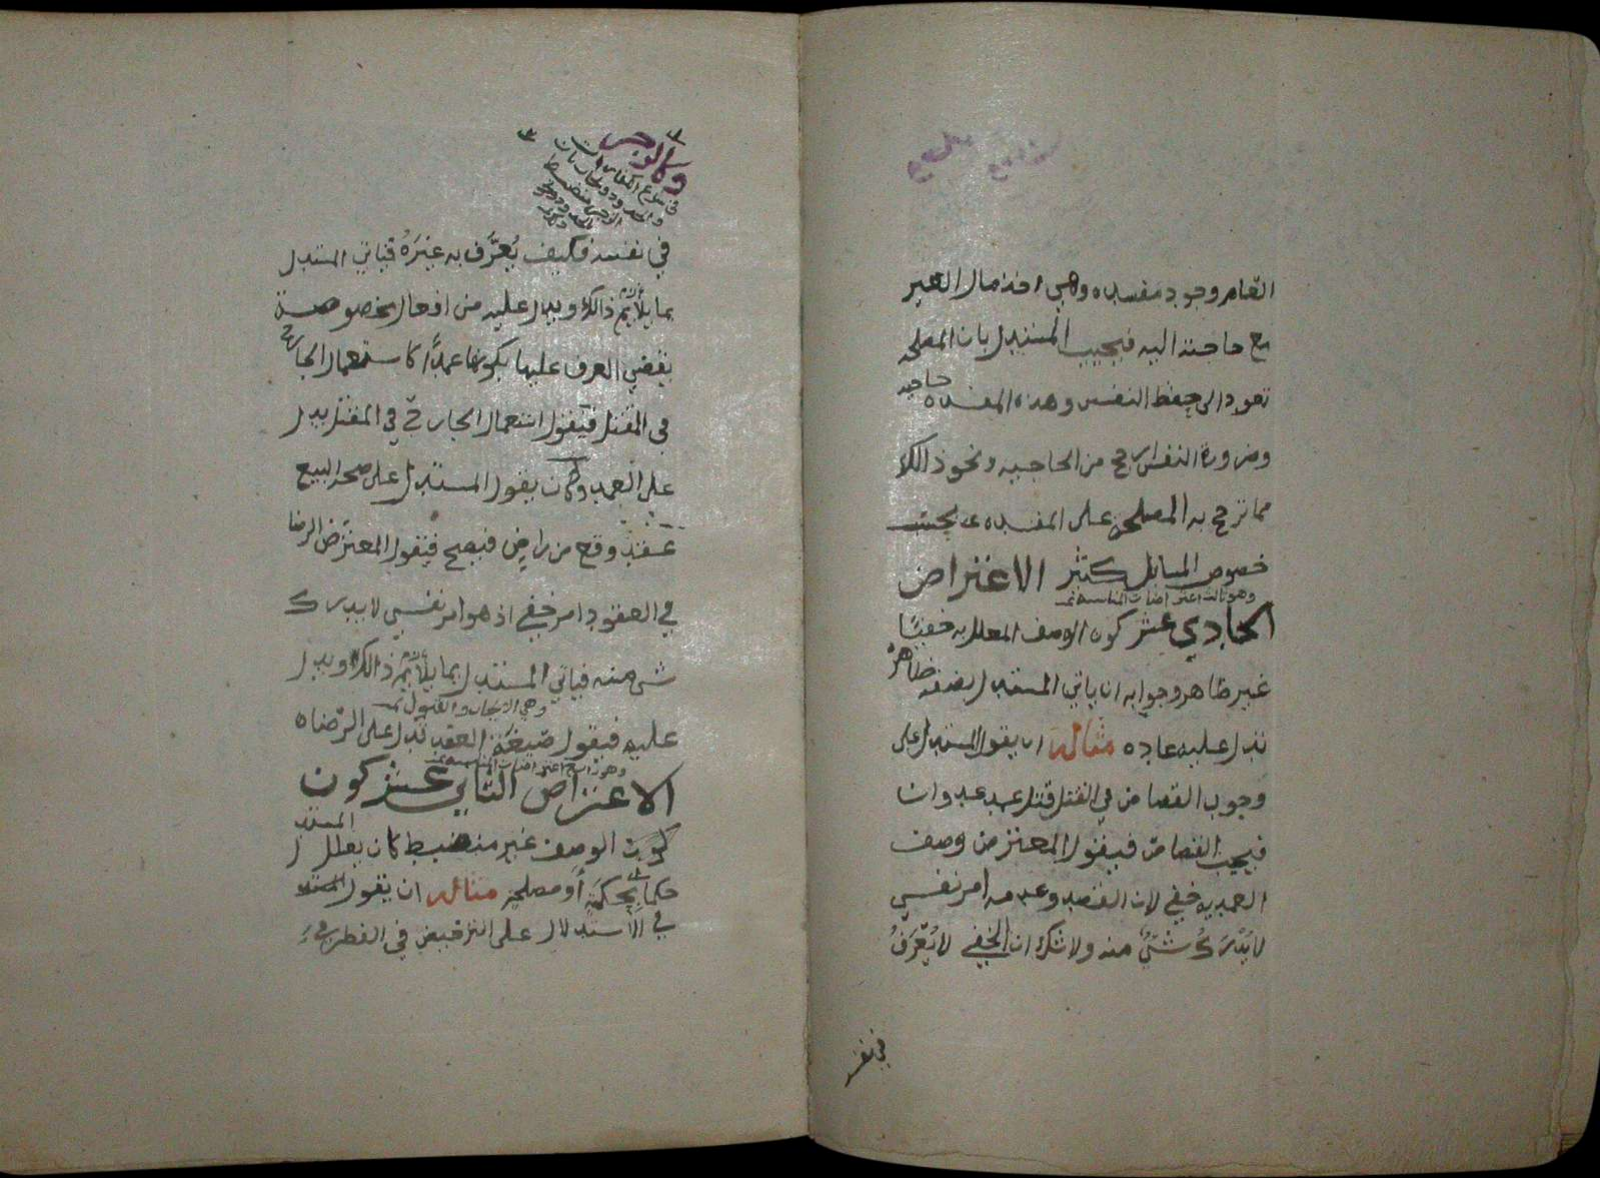 العام وجود مفسده وهي اخذ مال الغير
مع حاجته اليه فيجيب المستدل بان المصلحه
تعود الى حفظ النفس وهذه المفسده حاجيه
وضرورة النفس ارجح من الحاجيه ونحو ذالك
مما ترجح به المصلحه على المفسده بحسب
خصوص المسايل كثير الاعتراض
وهو ثالث اعتراضات المناسبه تمت
الحادي عشر كون الوصف المعلل به خفيًّا
غير ظاهر وجوابه ان ياتي المستدل بصفه ظاهره
تدل عليه عاده مثاله ان يقول المستدل على
وجوب القصاص في القتل قتل عمد عدوان
فيجب القصاص فيقول المعترض وصف
العمديه خفي لان القصد وعدمه امر نفسي
لا يُدْرَكُ شيٌ منه ولا شك ان الخفي لا يُعَرِّفُ
في نفسه
وكالوجس
في نفسه فكيف يُعَرَّف به غيرَهُ فياتي المستدل
بما يلائم ذالك ويدل عليه من افعال مخصوصة
يقضي العرف عليها بكونها عمدًا كاستعمال الجارح
في المقتل فيقول استعمال الجارح في المقتل يدل
على العمد وكان يقول المستدل على صحه البيع
عقد وقع من راضٍ فيصح فيقول المعترض الرضا
في العقود امر خفي اذ هو امر نفسي لا يدرك
شي منه فياتي المستدل بما يلائم ذالك ويدل
وهي الايجاب والقبول تمت
عليه فيقول صيغة العقد تدل على الرضاه
وهو رابع اعتراضات المناسبه تمت
الاعتراض الثاني عشر كون
كون الوصف غير منضبط كان يعلل المستدل
حكما بحكمَةٍ أو مصلحةٍ مثاله ان يقول المستدل
في الاستدلال على الترخيص في الفطر في